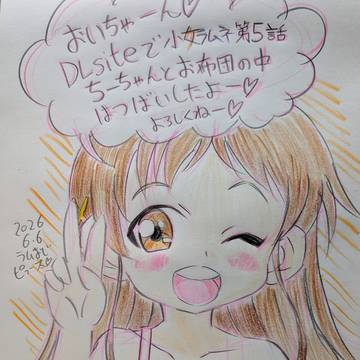 おいちゃーん♡
DLsiteで小女ラムネ第5話
ちーちゃんとお布団の中
はつばいしたよー♡
よろしくねー♡
2026
6.6
ラムおじ
ピース♡